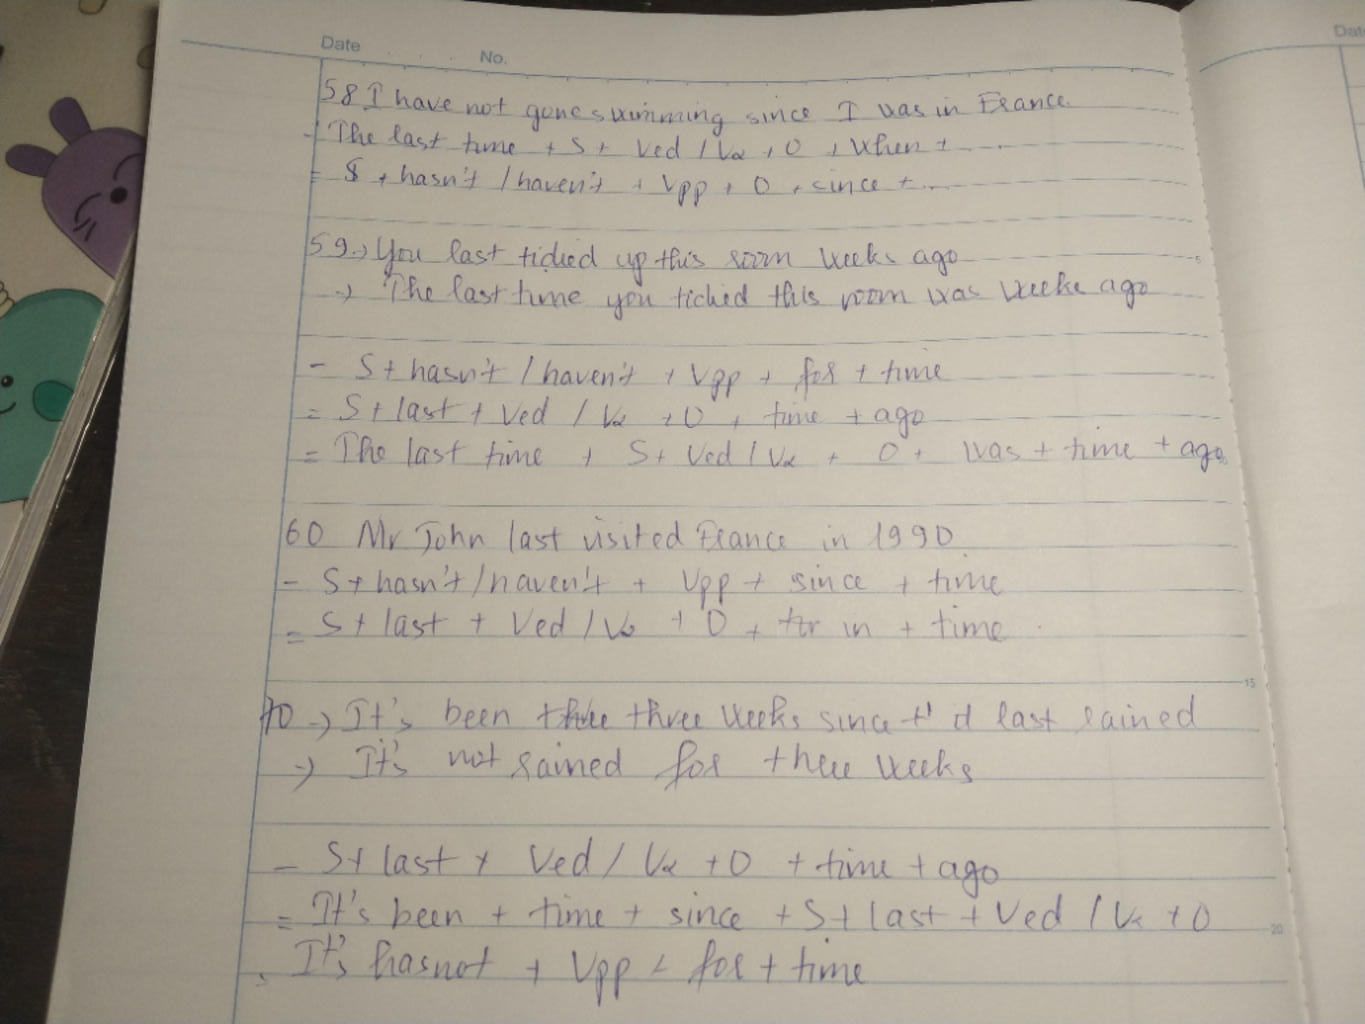 Date No.
58 I have not gone swimming since I was in France.
- The last time + S + Ved / V2 + O + When + ....
= S + hasn't / haven't + Vpp + O + since + ...
59 → You last tidied up this room weeks ago
→ The last time you tidied this room was weeks ago
- S + hasn't / haven't + Vpp + for + time
= S + last + Ved / V2 + O + time + ago
= The last time + S + Ved / V2 + O + was + time + ago
60 Mr John last visited France in 1990
- S + hasn't / haven't + Vpp + since + time
= S + last + Ved / V2 + O + in + time
70 → It's been three weeks since last rained
→ It's not rained for three weeks
- S + last + Ved / V2 + O + time + ago
= It's been + time + since + S + last + Ved / V2 + O
It's hasnot + Vpp + for + time
5
15
20